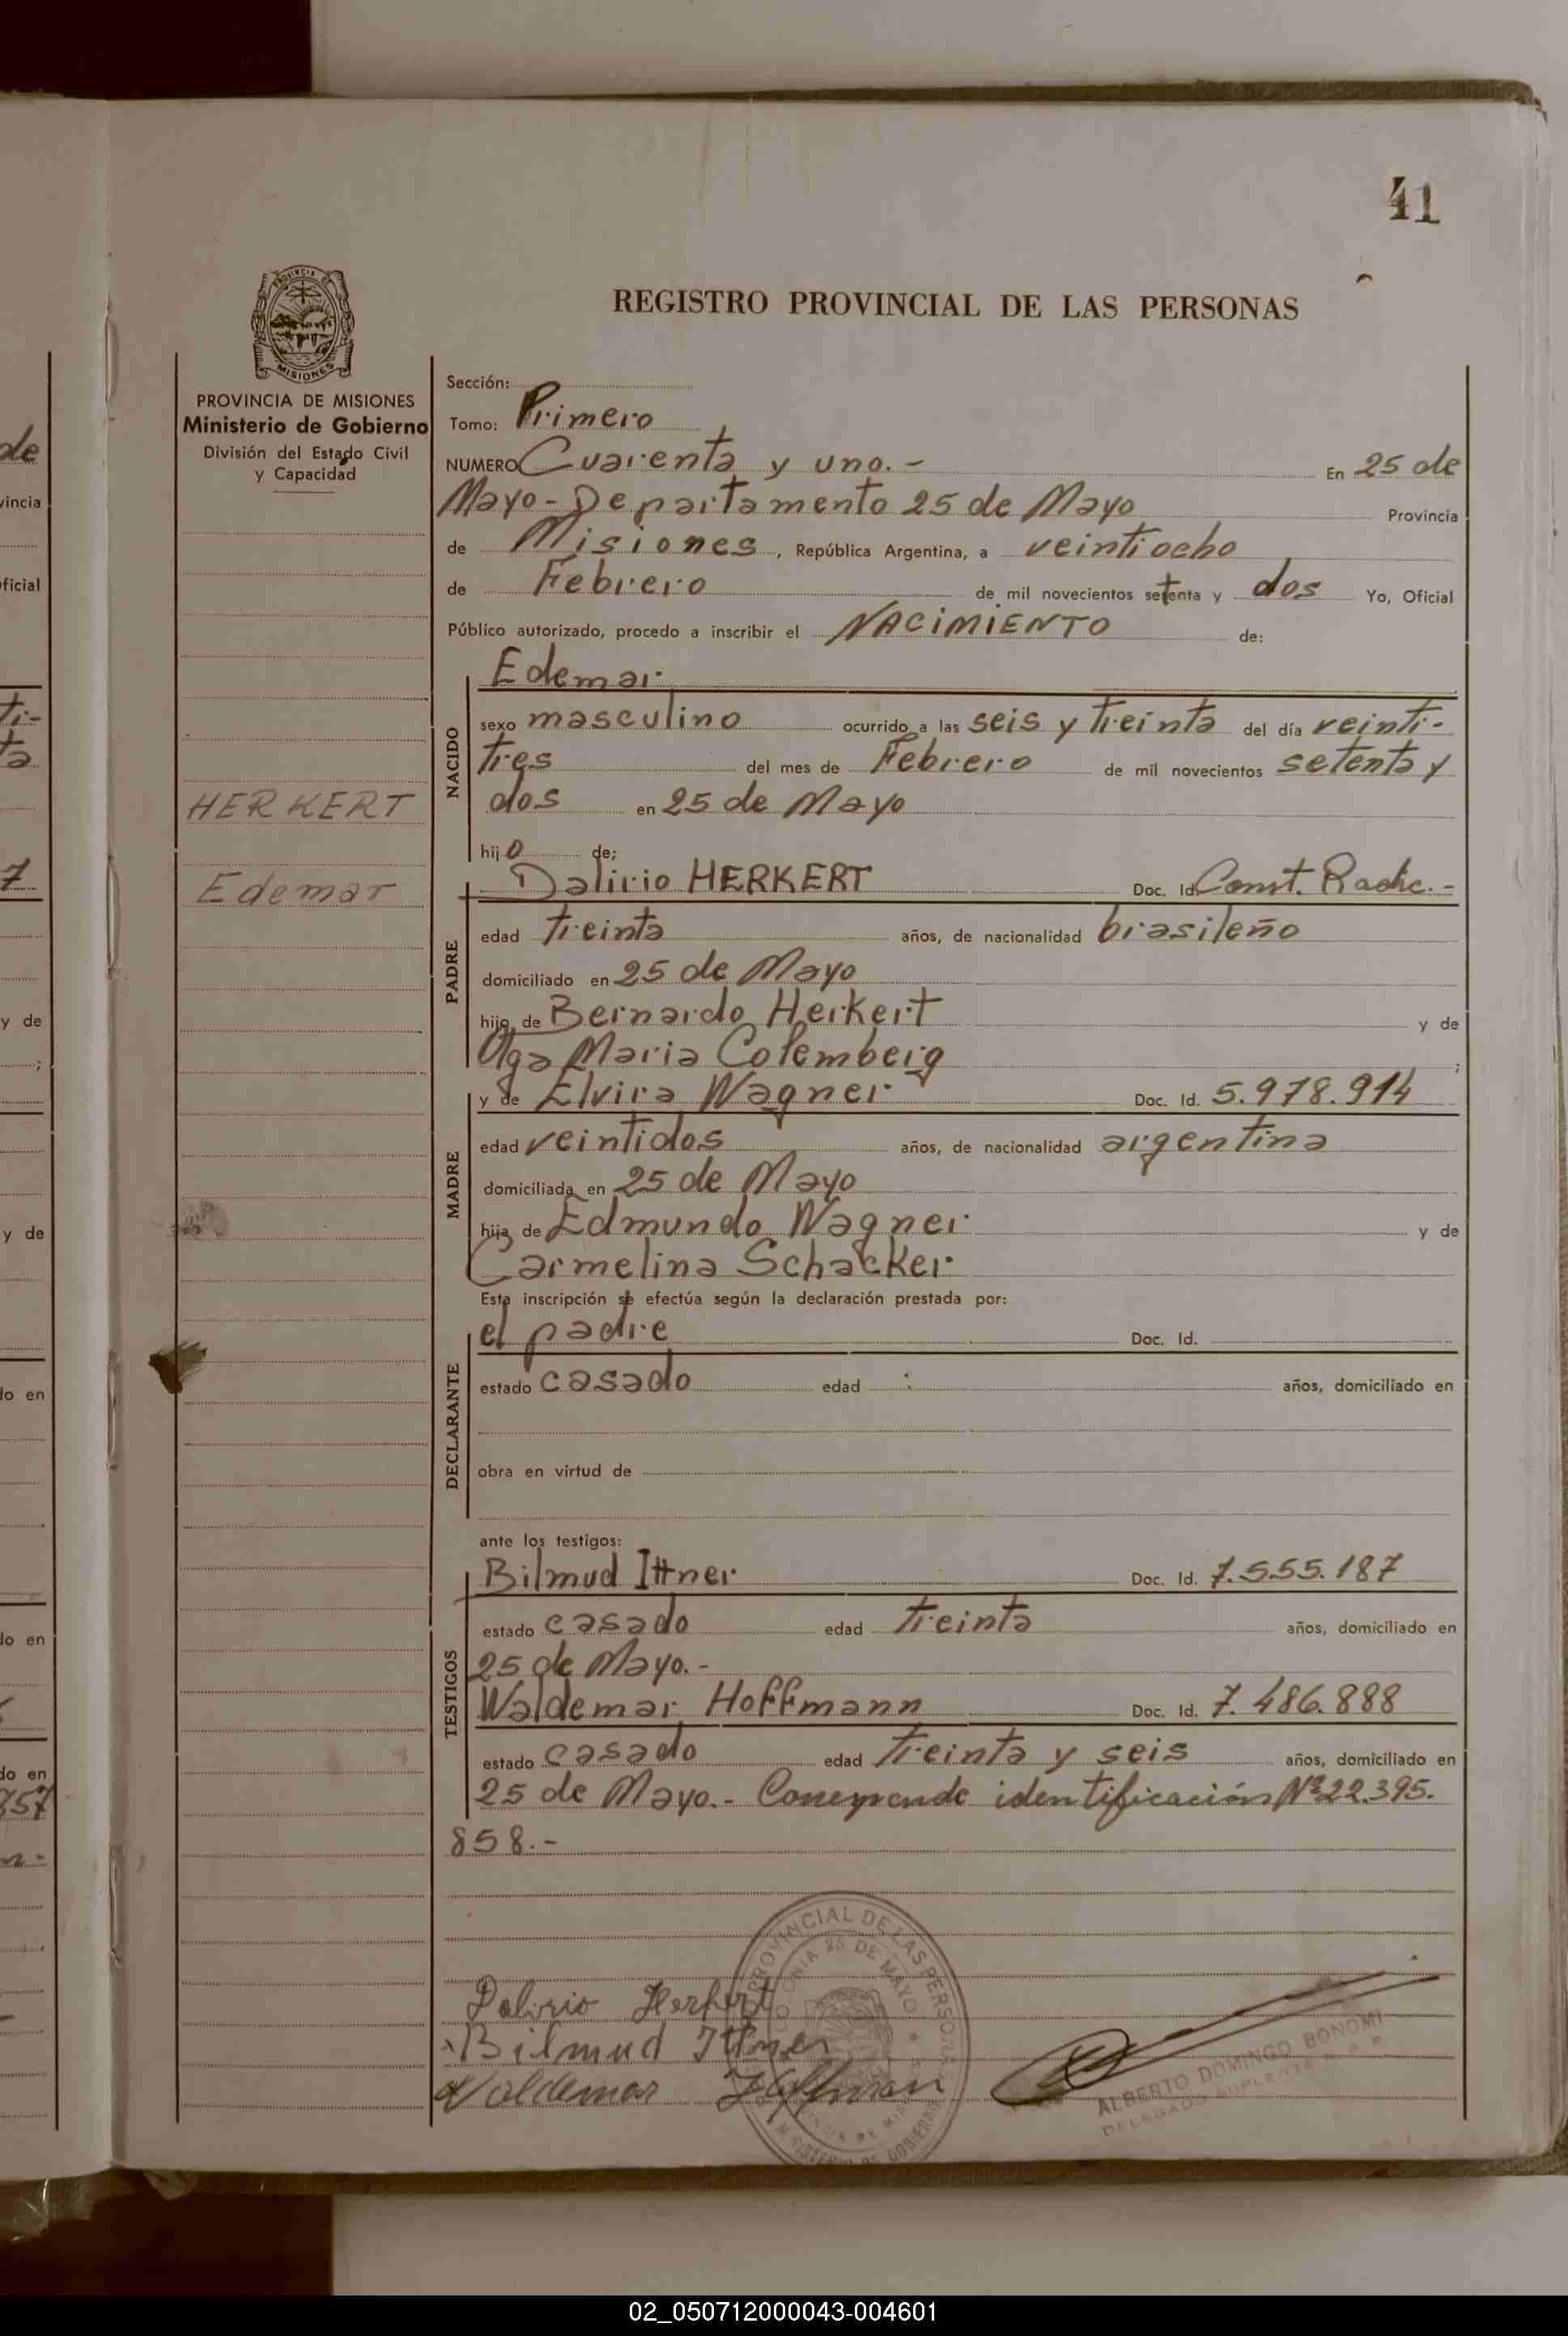 41
REGISTRO PROVINCIAL DE LAS PERSONAS
PROVINCIA DE MISIONES
Ministerio de Gobierno
División del Estado Civil
y Capacidad
HERKERT
Edemar
Sección:
Tomo: Primero
NUMERO Cuarenta y uno.- En 25 de
Mayo-Departamento 25 de Mayo Provincia
de Misiones, República Argentina, a veintiocho
de Febrero de mil novecientos setenta y dos Yo, Oficial
Público autorizado, procedo a inscribir el NACIMIENTO de:
NACIDO
Edemar
sexo masculino ocurrido a las seis y treinta del día veinti-
tres del mes de Febrero de mil novecientos setenta y
dos en 25 de Mayo
hijo de;
PADRE
Dalirio HERKERT Doc. Id. Const. Radic.-
edad treinta años, de nacionalidad brasileño
domiciliado en 25 de Mayo
hijo de Bernardo Herkert y de
Olga Maria Colemberg ;
MADRE
y de Elvira Wagner Doc. Id. 5.978.914
edad veintidos años, de nacionalidad argentina
domiciliada en 25 de Mayo
hija de Edmundo Wagner y de
Carmelina Schacker
Esta inscripción se efectúa según la declaración prestada por:
DECLARANTE
el padre Doc. Id.
estado casado edad años, domiciliado en
obra en virtud de
ante los testigos:
TESTIGOS
Bilmud Ittner Doc. Id. 7.555.187
estado casado edad treinta años, domiciliado en
25 de Mayo.-
Waldemar Hoffmann Doc. Id. 7.486.888
estado casado edad treinta y seis años, domiciliado en
25 de Mayo.- identificación Nº 22.395.
858.-
Dalirio Herkert
Bilmud Ittner
Waldemar Hoffman
PROVINCIAL DE LAS PERSONAS
25 DE MAYO
MINISTERIO DE GOBIERNO
ALBERTO DOMINGO BONOMI
DELEGADO SUPLENTE
02_050712000043-004601